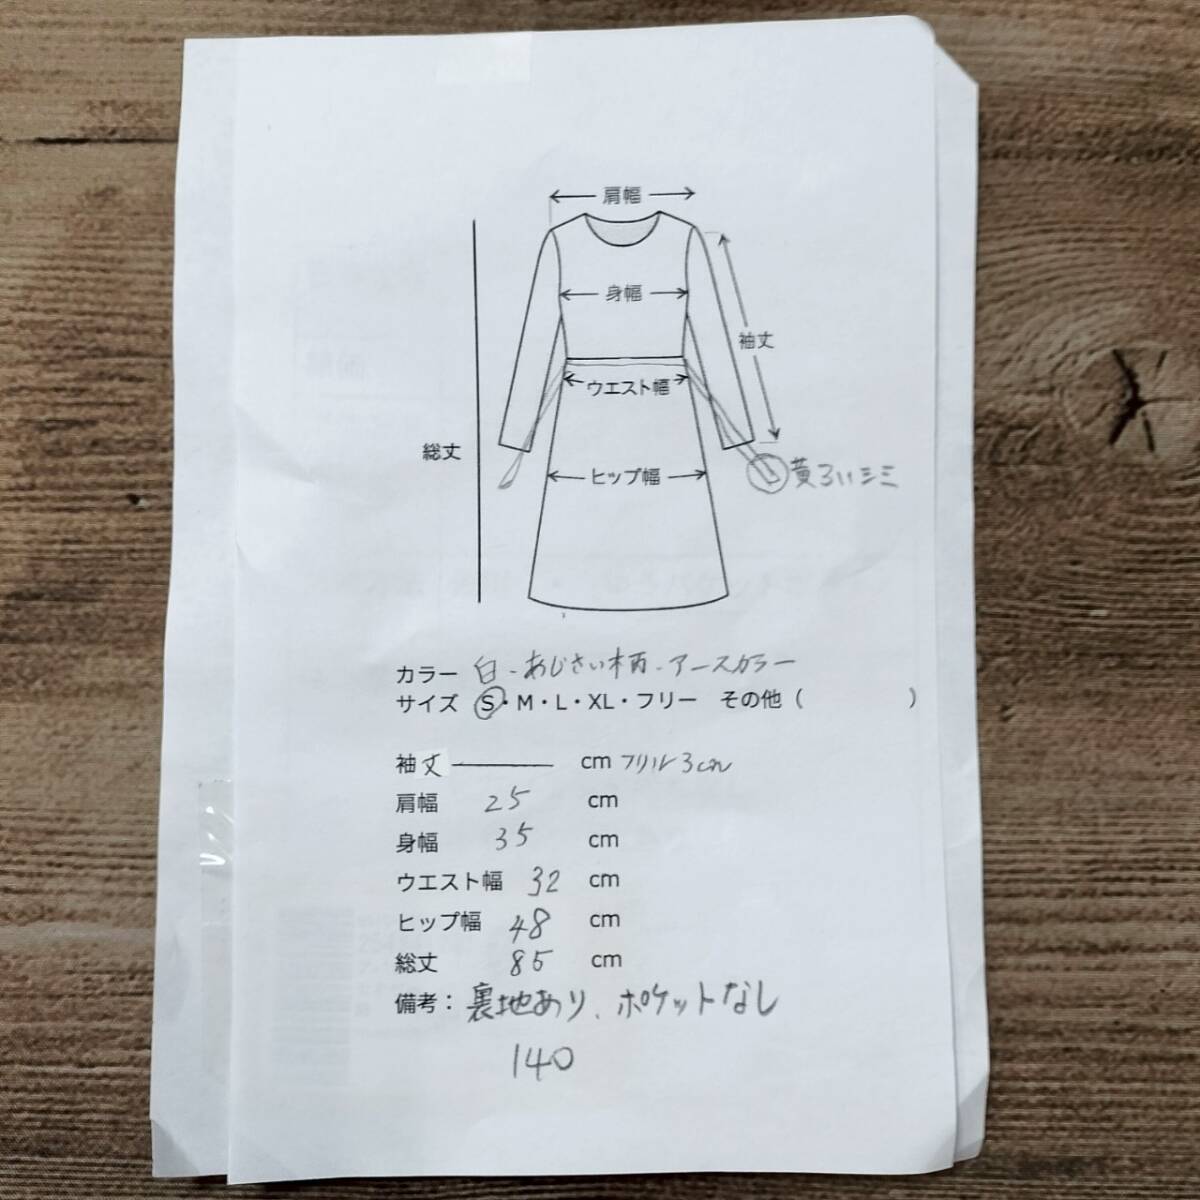 肩幅
身幅
袖丈
ウエスト幅
総丈
ヒップ幅
黄ろいシミ
カラー 白・あじさい柄・アースカラー
サイズ S・M・L・XL・フリー その他（ ）
袖丈 ― cm フリル3cm
肩幅 25 cm
身幅 35 cm
ウエスト幅 32 cm
ヒップ幅 48 cm
総丈 85 cm
備考：裏地あり、ポケットなし
140